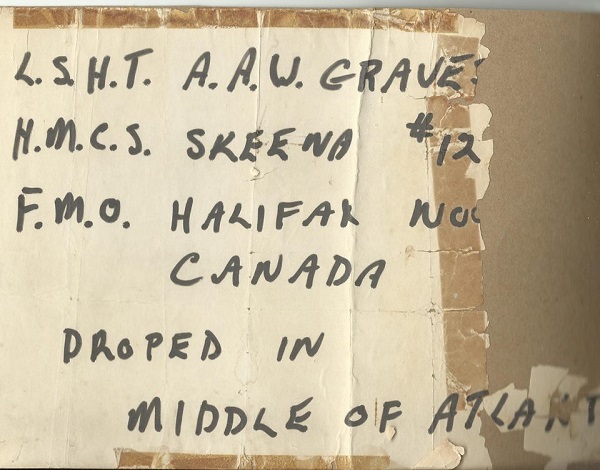 L.S.H.T. A.A.W. GRAVES
H.M.C.S. SKEENA #12
F.M.O. HALIFAX
CANADA
DROPED IN
MIDDLE OF ATLANT